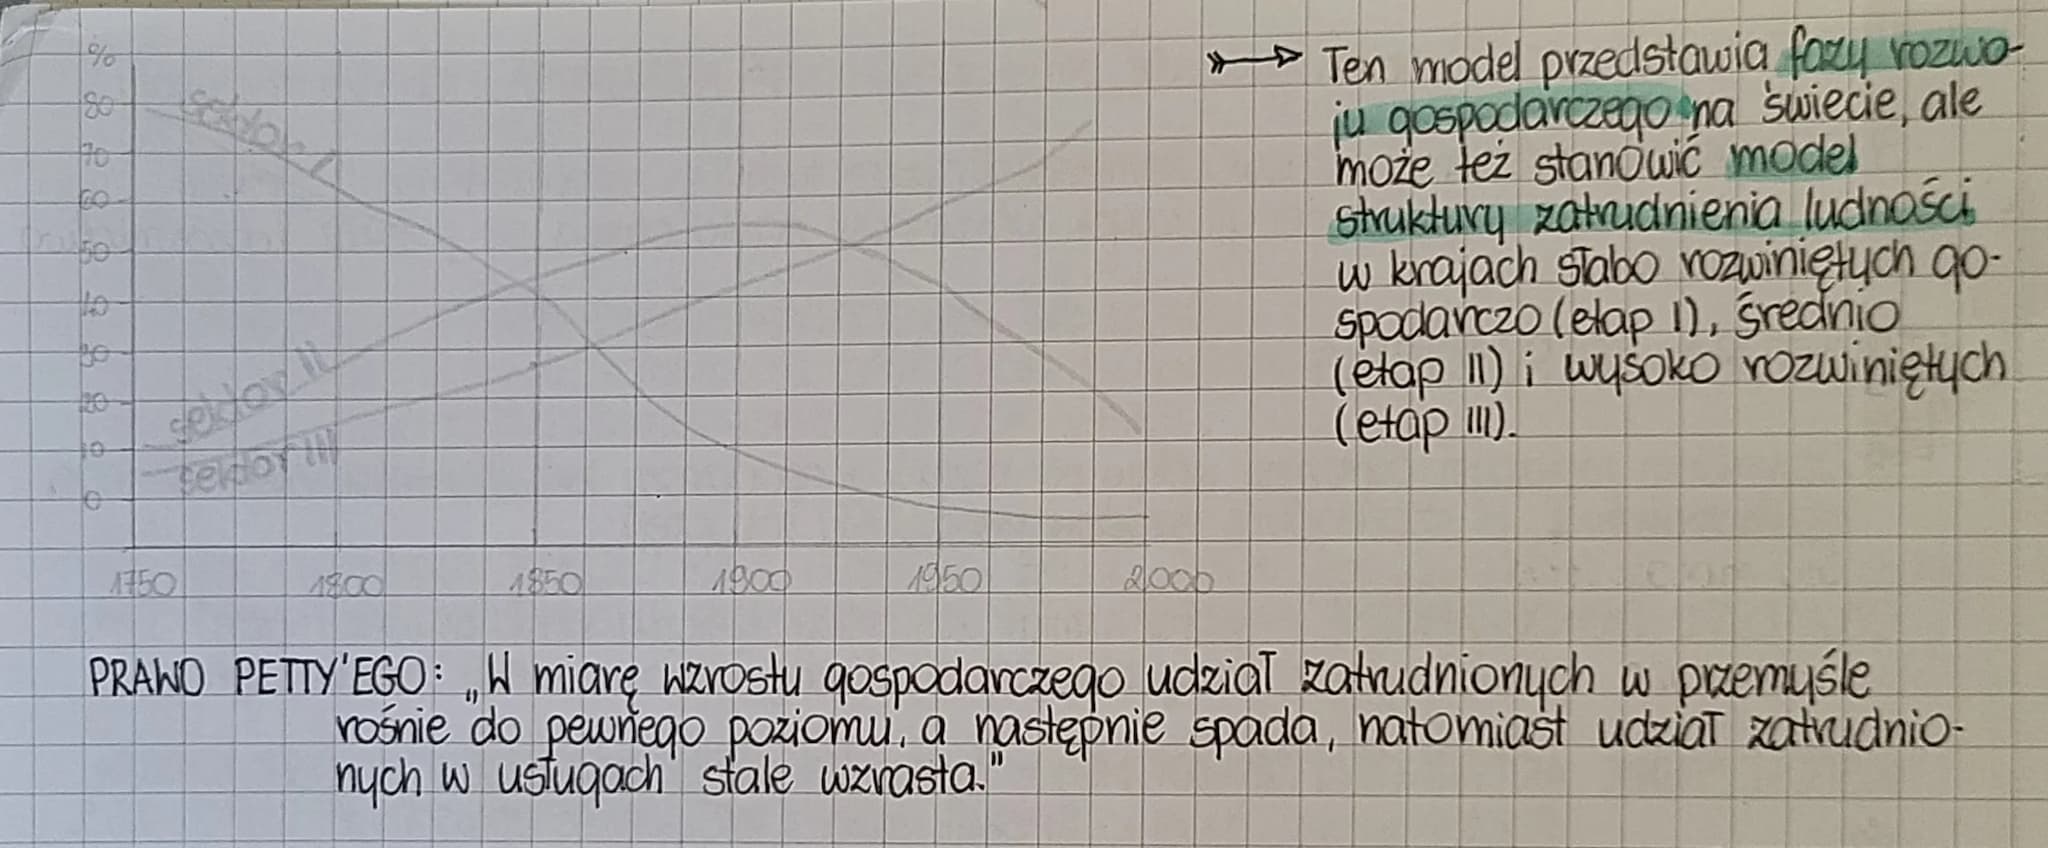 %
80
70
60
50
40
30
20
10
0
sektor I
sektor II
sektor III
1750 1800 1850 1900 1950 2000
Ten model przedstawia fazy rozwo-
ju gospodarczego na świecie, ale
może też stanowić model
struktury zatrudnienia ludności
w krajach słabo rozwiniętych go-
spodarczo (etap I), średnio
(etap II) i wysoko rozwiniętych
(etap III).
PRAWO PETTY'EGO: „W miarę wzrostu gospodarczego udział zatrudnionych w przemyśle
rośnie do pewnego poziomu, a następnie spada, natomiast udział zatrudnio-
nych w usługach stale wzrasta."